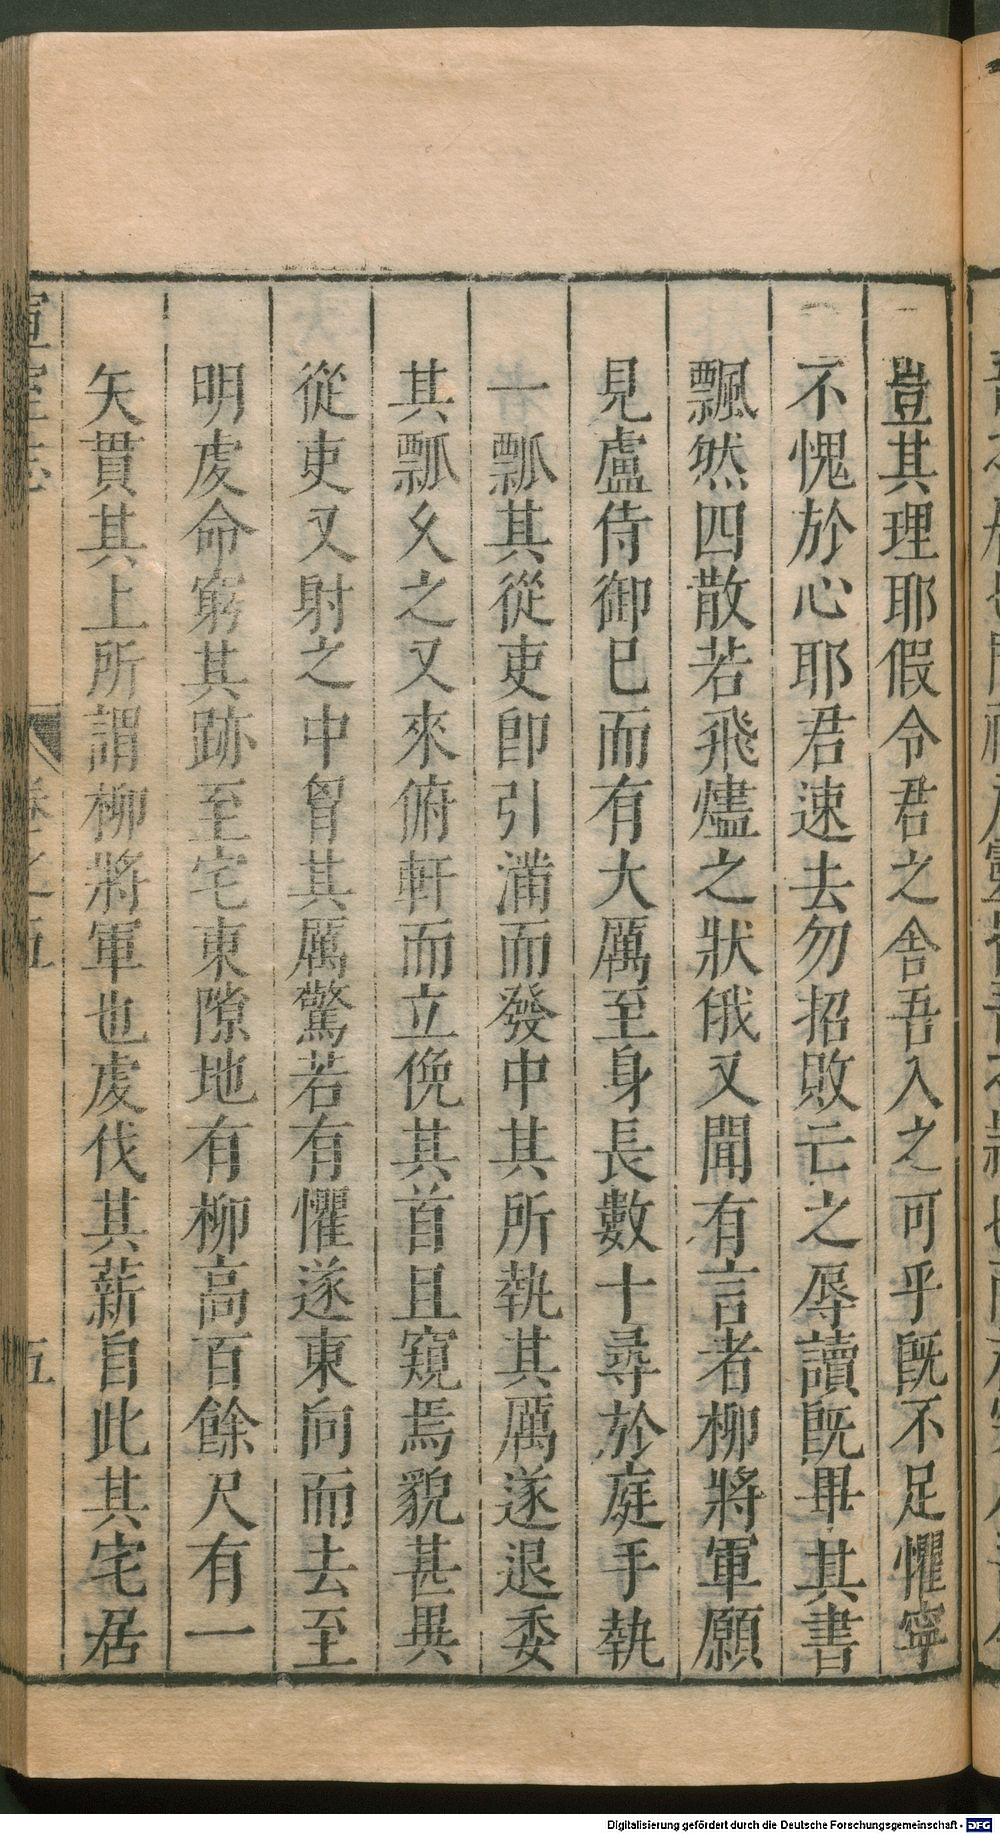 豈其理耶假令君之舎吾入之可乎既不足懼寧
不愧於心耶君速去勿招敗亡之辱讀既畢其書
飄然四散若飛燼之狀俄又聞有言者柳將軍願
見盧侍御巳而有大厲至身長數十尋於庭手執
一瓢其從吏卽引滿而發中其所執其厲遂退委
其瓢久之又來俯軒而立俛其首且窺焉貌甚異
從吏又射之中胷其厲驚若有懼遂東向而去至
明虔命窮其跡至宅東隙地有柳高百餘尺有一
矢貫其上所謂柳將軍也虔伐其薪自此其宅居
宣室志
卷之五
五
Digitalisierung gefördert durch die Deutsche Forschungsgemeinschaft - DFG